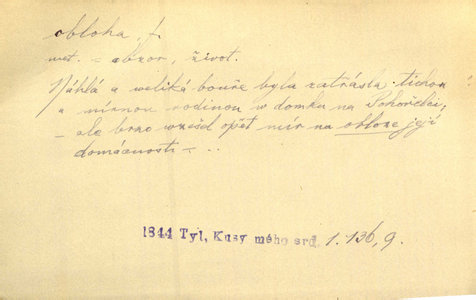 obloha, f
met. = obzor, život.
Náhlá a weliká bouře byla zatřásla tichou
a mírnou rodinou w domku na Sokořičkách,
– ale brzo wzešel opět mír na obloze její
domácnosti – ..
1844 Tyl, Kusy mého srd. 1. 136, 9.